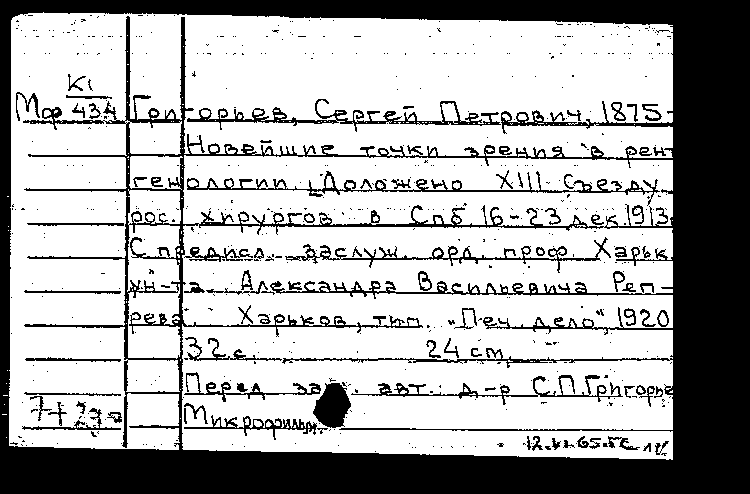 К1
Мф 434 Григорьев, Сергей Петрович, 1875-
Новейшие точки зрения в рент
генологии. [Доложено XIII съезду
рос. хирургов в Спб 16-23 дек. 1913
С предисл. заслуж. орд. проф. Харьк.
ун-та. Александра Васильевича Реп-
рева. Харьков, тип. "Печ. дело", 1920
32 с. 24 cm.
Перед авт.: д-р С.П. Григорье
Микрофильм.